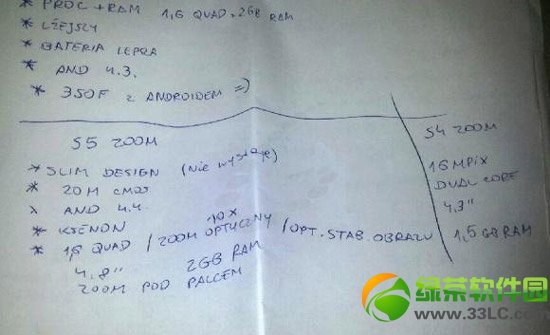 * PROC + RAM 1,6 QUAD, 2GB RAM
* LŻEJSZY
* BATERIA LEPSZA
* AND 4.3.
* 350F z ANDROIDEM =)
S5 ZOOM
* SLIM DESIGN (Nie wystaje)
* 20 M CMOS
AND 4.4.
* KSENON
* 1,6 QUAD / ZOOM OPTYCZNY 10x / OPT. STAB. OBRAZU
4,8" 2GB RAM
ZOOM POD PALCEM
S4 ZOOM
16 MPIX
DUAL CORE
4,3"
1,5 GB RAM
绿茶软件园
www.33LC.com